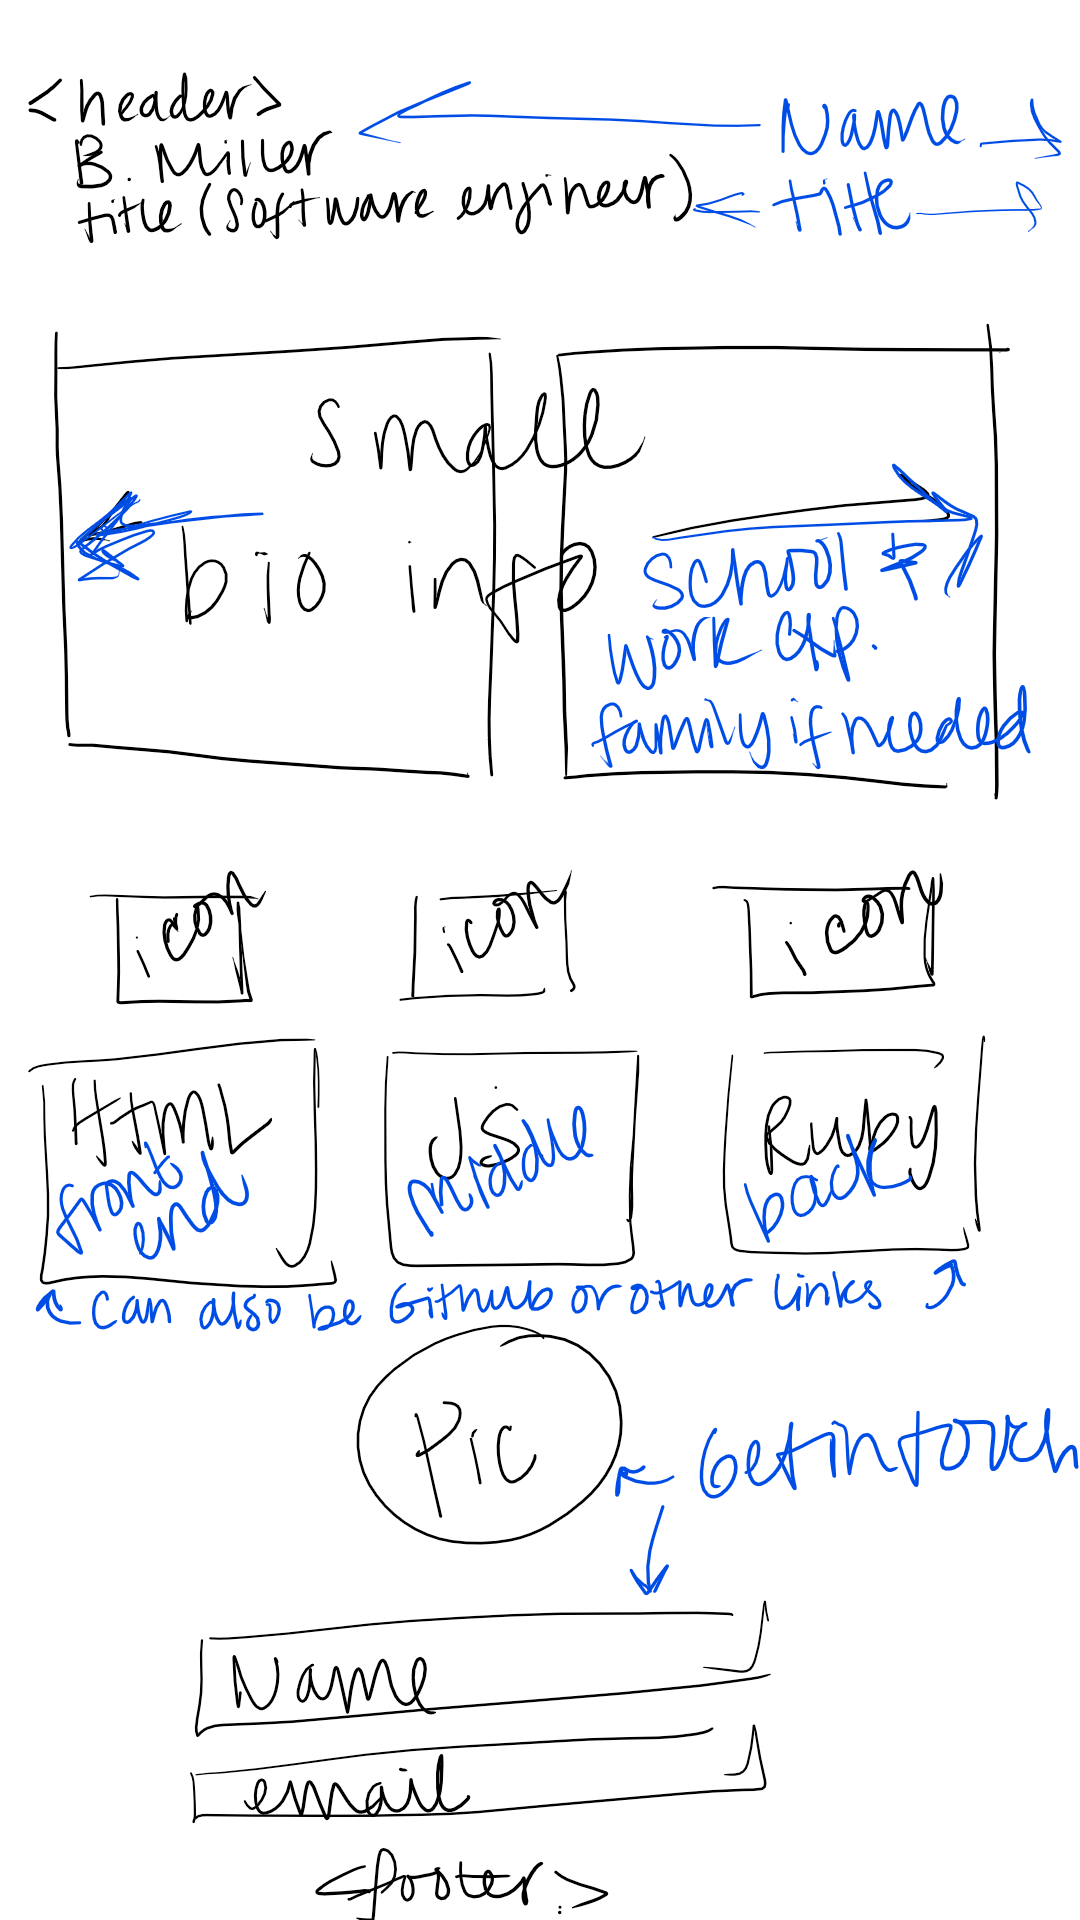 <header>
B. Miller
Name
title (Software engineer)
title
small
bio info
school &
work exp.
family if needed
icon
icon
icon
HTML
front
end
JS
middle
Ruby
back
Can also be Github or other links
Pic
Get in touch
Name
email
<footer>